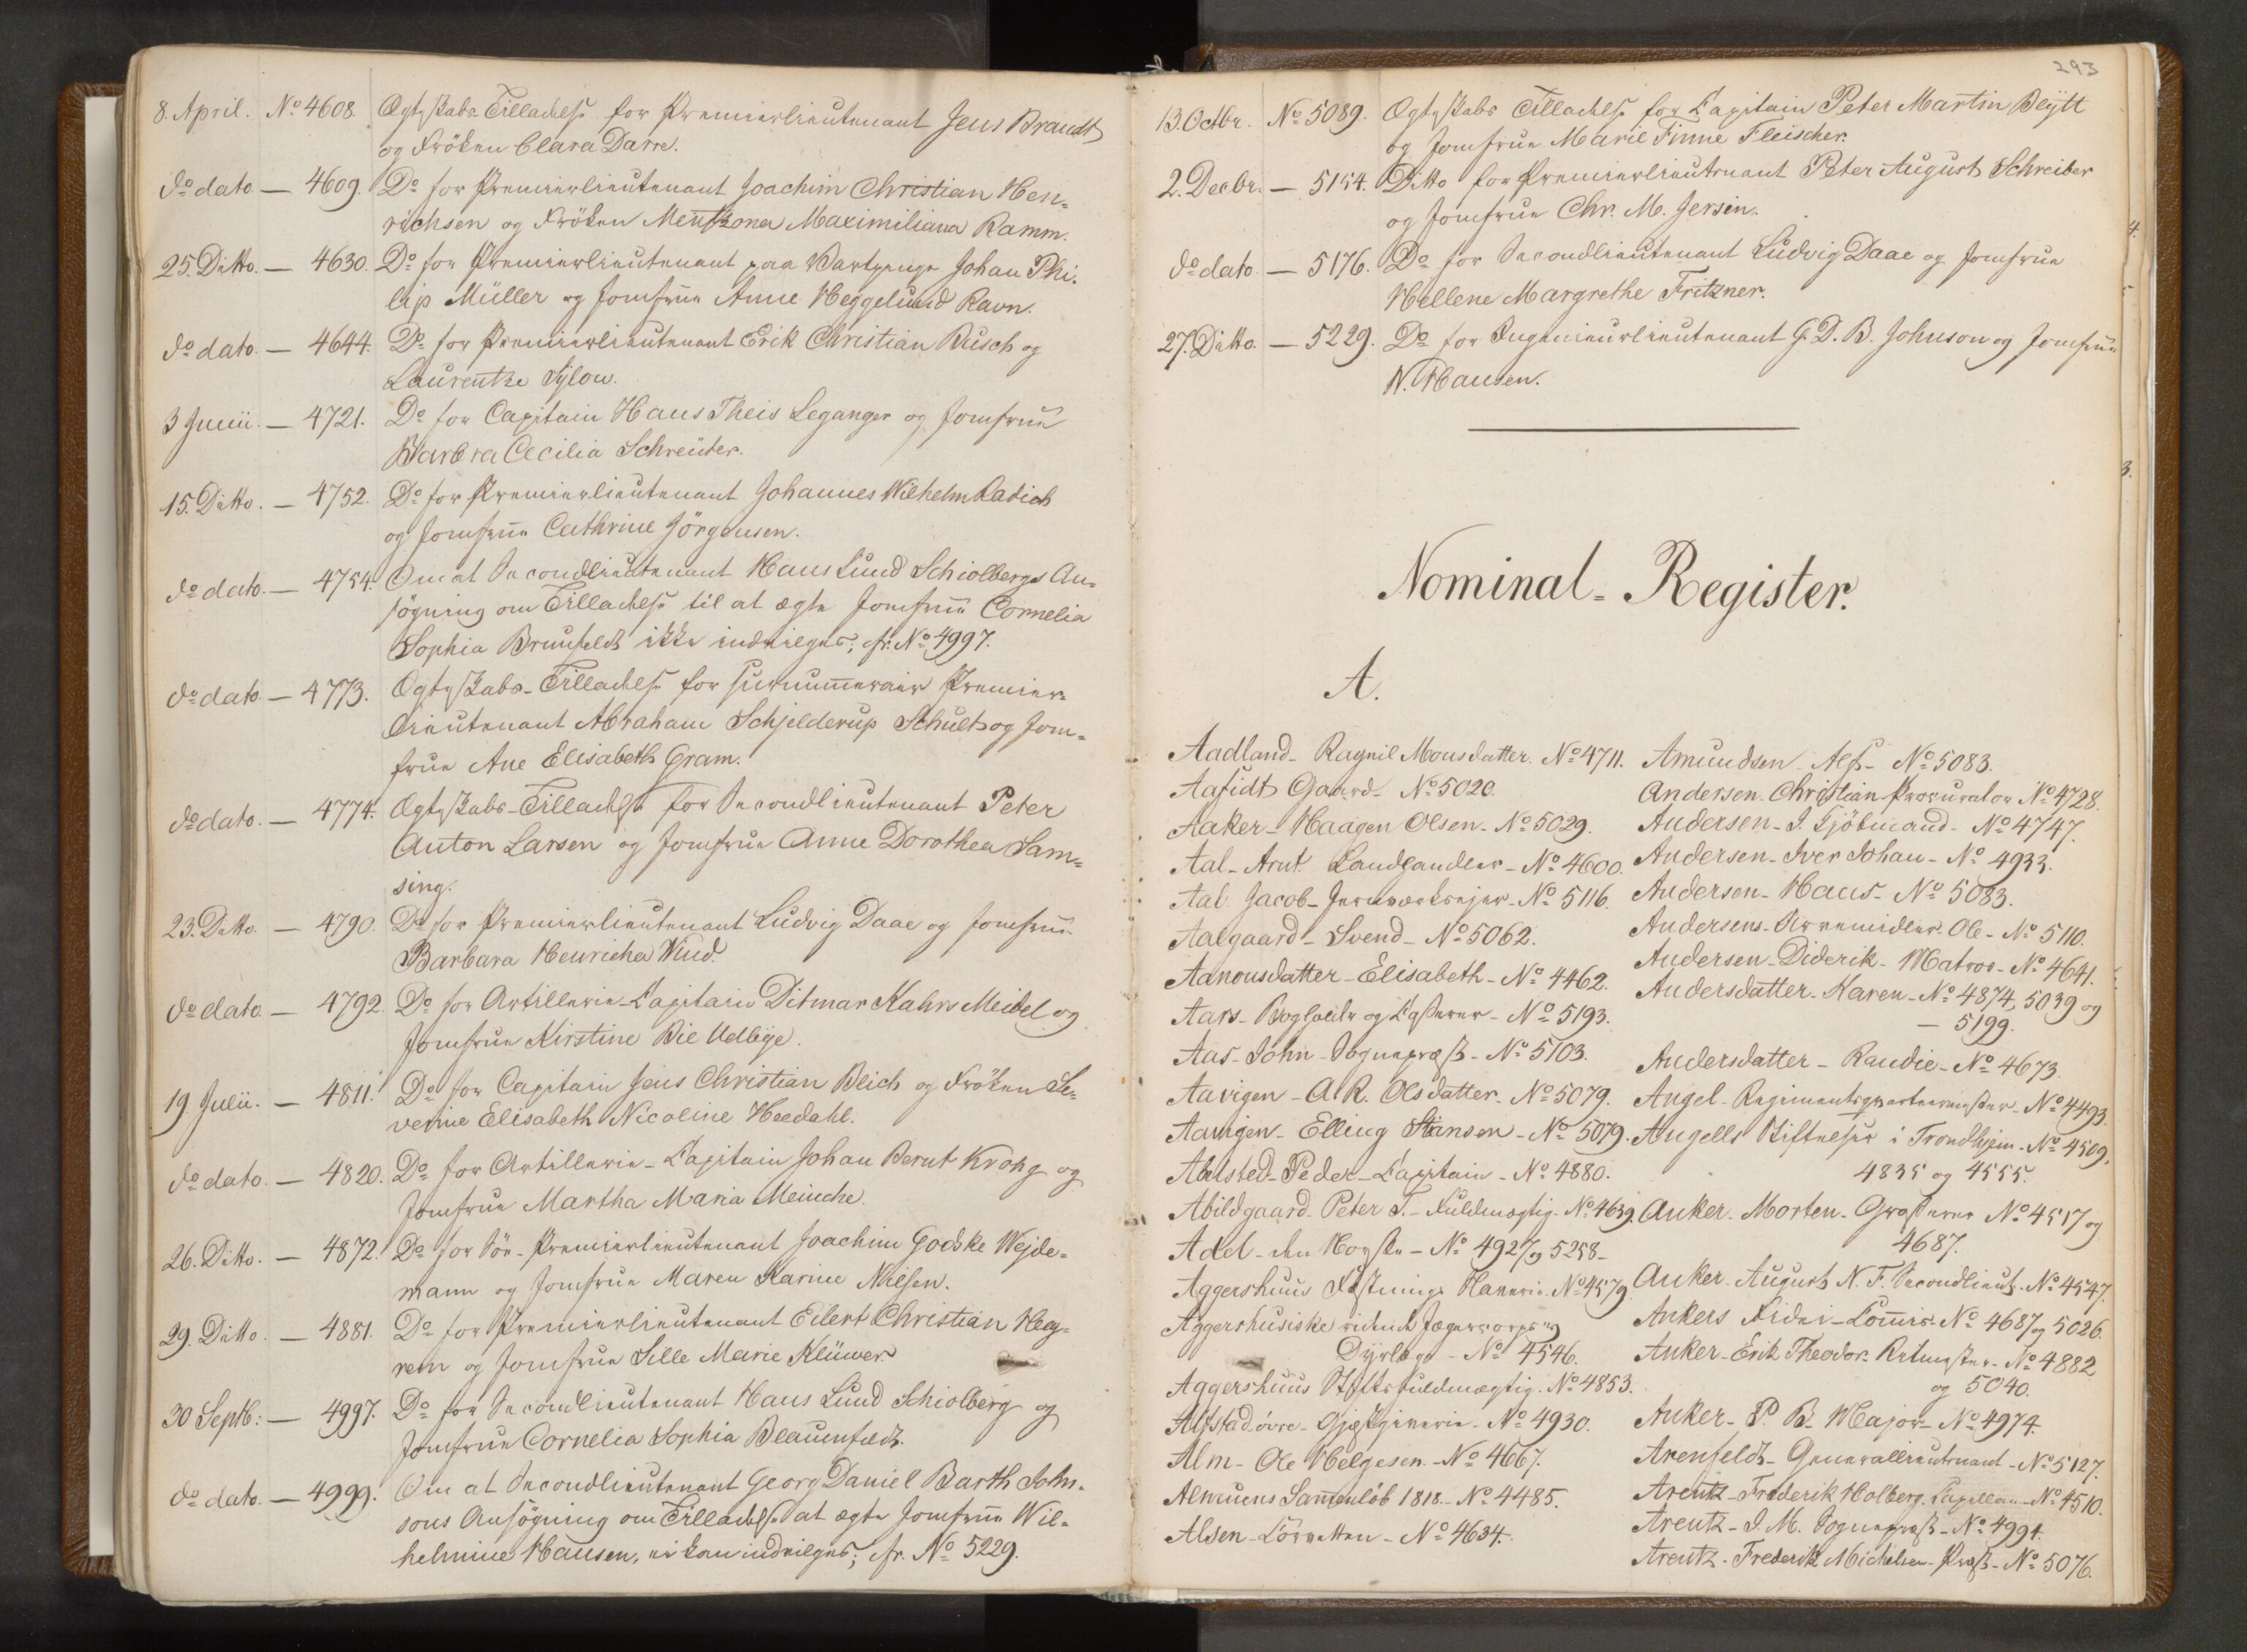 8. April. No 4608. Ægteskabs Tilladelse for Premierlieutenant Jens Brandt
og Fröken Clara Darre.
do dato — 4609. Do for Premierlieutenant Joachim Christian Hen=
richsen og Fröken Mentzona Maximiliana Ramm.
25. Ditto. — 4630. Do for Premierlieutenant paa Vartpenge Johan Phi=
lip Müller og Jomfrue Anne Heggelund Ravn.
do dato. — 4644. Do for Premierlieutenant Erik Christian Busch og
Laurentze Sylow.
3 Junii. — 4721. Do for Capitain Hans Theis Leganger og Jomfrue
Barbra Cecilia Schreuder.
15. Ditto. — 4752. Do for Premierlieutenant Johannes Wilhelm Radich
og Jomfrue Cathrine Jörgensen.
do dato. — 4754. Om at Secondlieutenant Hans Lund Schiolbergs An=
søgning om Tilladelse til at ægte Jomfrue Cornelia
Sophia Brunfeldt ikke indvilges; cfr. No 4997.
do dato — 4773. Ægteskabs-Tilladelse for surnumerair Premier=
lieutenant Abraham Schjelderup Schult og Jom=
frue Ane Elisabeth Gram.
do dato. — 4774. Ægteskabs-Tilladelse for Secondlieutenant Peter
Anton Larsen og Jomfrue Anne Dorothea Sam=
sing.
23. Ditto. — 4790. Do for Premierlieutenant Ludvig Daae og Jomfrue
Barbara Henricha Wind.
do dato — 4792. Do for Artillerie-Capitain Ditmar Kahrs Meidel og
Jomfrue Kirstine Bie Uelbye.
19 Julii. — 4811. Do for Capitain Jens Christian Blich og Fröken Se=
verine Elisabeth Nicoline Heedahl.
do dato. — 4820. Do for Artillerie-Capitain Johan Bernt Krohg og
Jomfrue Martha Maria Meincke.
26. Ditto. — 4872. Do for Söe-Premierlieutenant Joachim Godske Wejde=
mann og Jomfrue Maren Karine Nilsen.
29. Ditto. — 4881. Do for Premierlieutenant Eilert Christian Hag=
rem og Jomfrue Sille Marie Klüwer.
30 Septb: — 4997. Do for Secondlieutenant Hans Lund Schiolberg og
Jomfrue Cornelia Sophia Blauenfeldt.
do dato. — 4999. Om at Secondlieutenant Georg Daniel Barth John=
sons Ansögning om Tilladelse at ægte Jomfrue Wil=
helmine Hansen, ei kan indvilges; cfr. No 5229.
293
13. Octbr. No 5089. Ægteskabs Tilladelse for Capitain Peter Martin Blÿtt
og Jomfrue Marie Finne Fleischer.
2. Decbr. — 5154. Ditto for Premierlieutenant Peter August Schreiber
og Jomfrue Chr. M. Jersin.
do dato. — 5176. Do for Secondlieutenant Ludvig Daae og Jomfrue
Hellene Margrethe Fritzner.
27. Ditto. — 5229. Do for Ingenieurlieutenant G. D. B. Johnson og Jomfrue
W. Hansen.
Nominal-Register.
A.
Aadland- Ragnil Monsdatter. No 4711.
Aafidt Gaard- No 5020.
Aaker- Haagen Olsen- No 5029.
Aal- Arnt. Landhandler- No 4600.
Aal. Jacob- Jernværksejer- No 5116.
Aalgaard- Svend- No 5062.
Aanonsdatter- Elisabeth- No 4462.
Aars- Bogholder og Casserer- No 5193.
Aas- John- Sognepræst- No 5103.
Aavigen- A. R. Olsdatter- No 5079.
Aavigen- Elling Hansen- No 5079.
Abelsted- Peder- Capitain- No 4880.
Abildgaard. Peter T.- Fuldmægtig- No 4639.
Adel- den Norske- No 4927 og 5258-
Aggershuus Fæstnings Slaverie. No 4579.
Aggershusiske ridende Jægercorps
Dyrlæge- No 4546.
Aggershuus Stiftsfuldmægtig. No 4853.
Alfstad. övre- Gjæstgiverie- No 4930.
Alm- Ole Helgesen- No 4667.
Almuens Sammenlöb 1818- No 4485.
Alsen- Corvetten- No 4634.
Amundsen- Alf- No 5083.
Andersen. Christian Procurator No 4728.
Andersen- I. Kjöbmand- No 4747.
Andersen- Iver Johan- No 4933.
Andersen- Hans- No 5083.
Andersens- Ole- No 5110.
Andersen- Diderik- Matros- No 4641.
Andersdatter- Karen- No 4874, 5039 og
— 5199.
Andersdatter- Randie- No 4673.
Angel- Regimentsqvarteermester- No 4493.
Angells Stiftelser i Trondhjem- No 4509,
4835 og 4555.
Anker. Morten- Grosserer No 4517 og
4687.
Anker. August N. F. Secondlieut. No 4547.
Ankers Fidei-Commis- No 4687 og 5026.
Anker- Erik Theodor- Ritmester- No 4882
og 5040.
Anker- P. B. Major- No 4974.
Arenfeldt- Generallieutenant- No 5127.
Arentz- Frederik Holberg. Capellan- No 4510.
Arentz- I. M. Sognepræst- No 4994.
Arentz. Frederik Michelsen- Præst- No 5076.